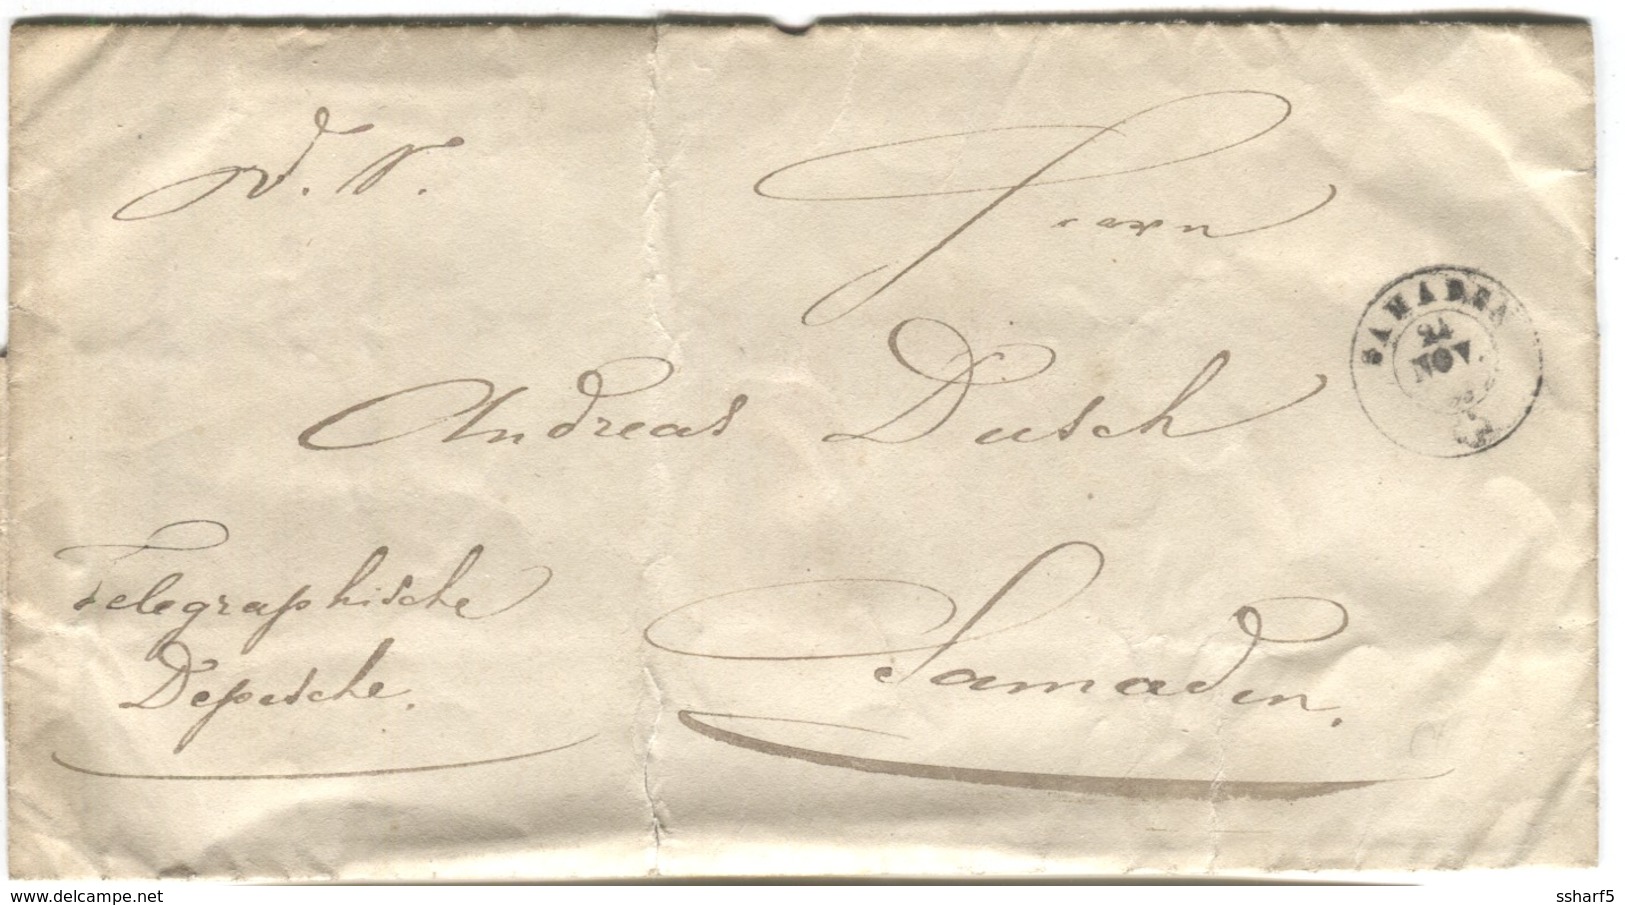 Herrn
Andreas Dusch
Samaden.
Telegraphische
Depesche.
SAMADEN
24
NOV.
www.delcampe.net
ssharf5